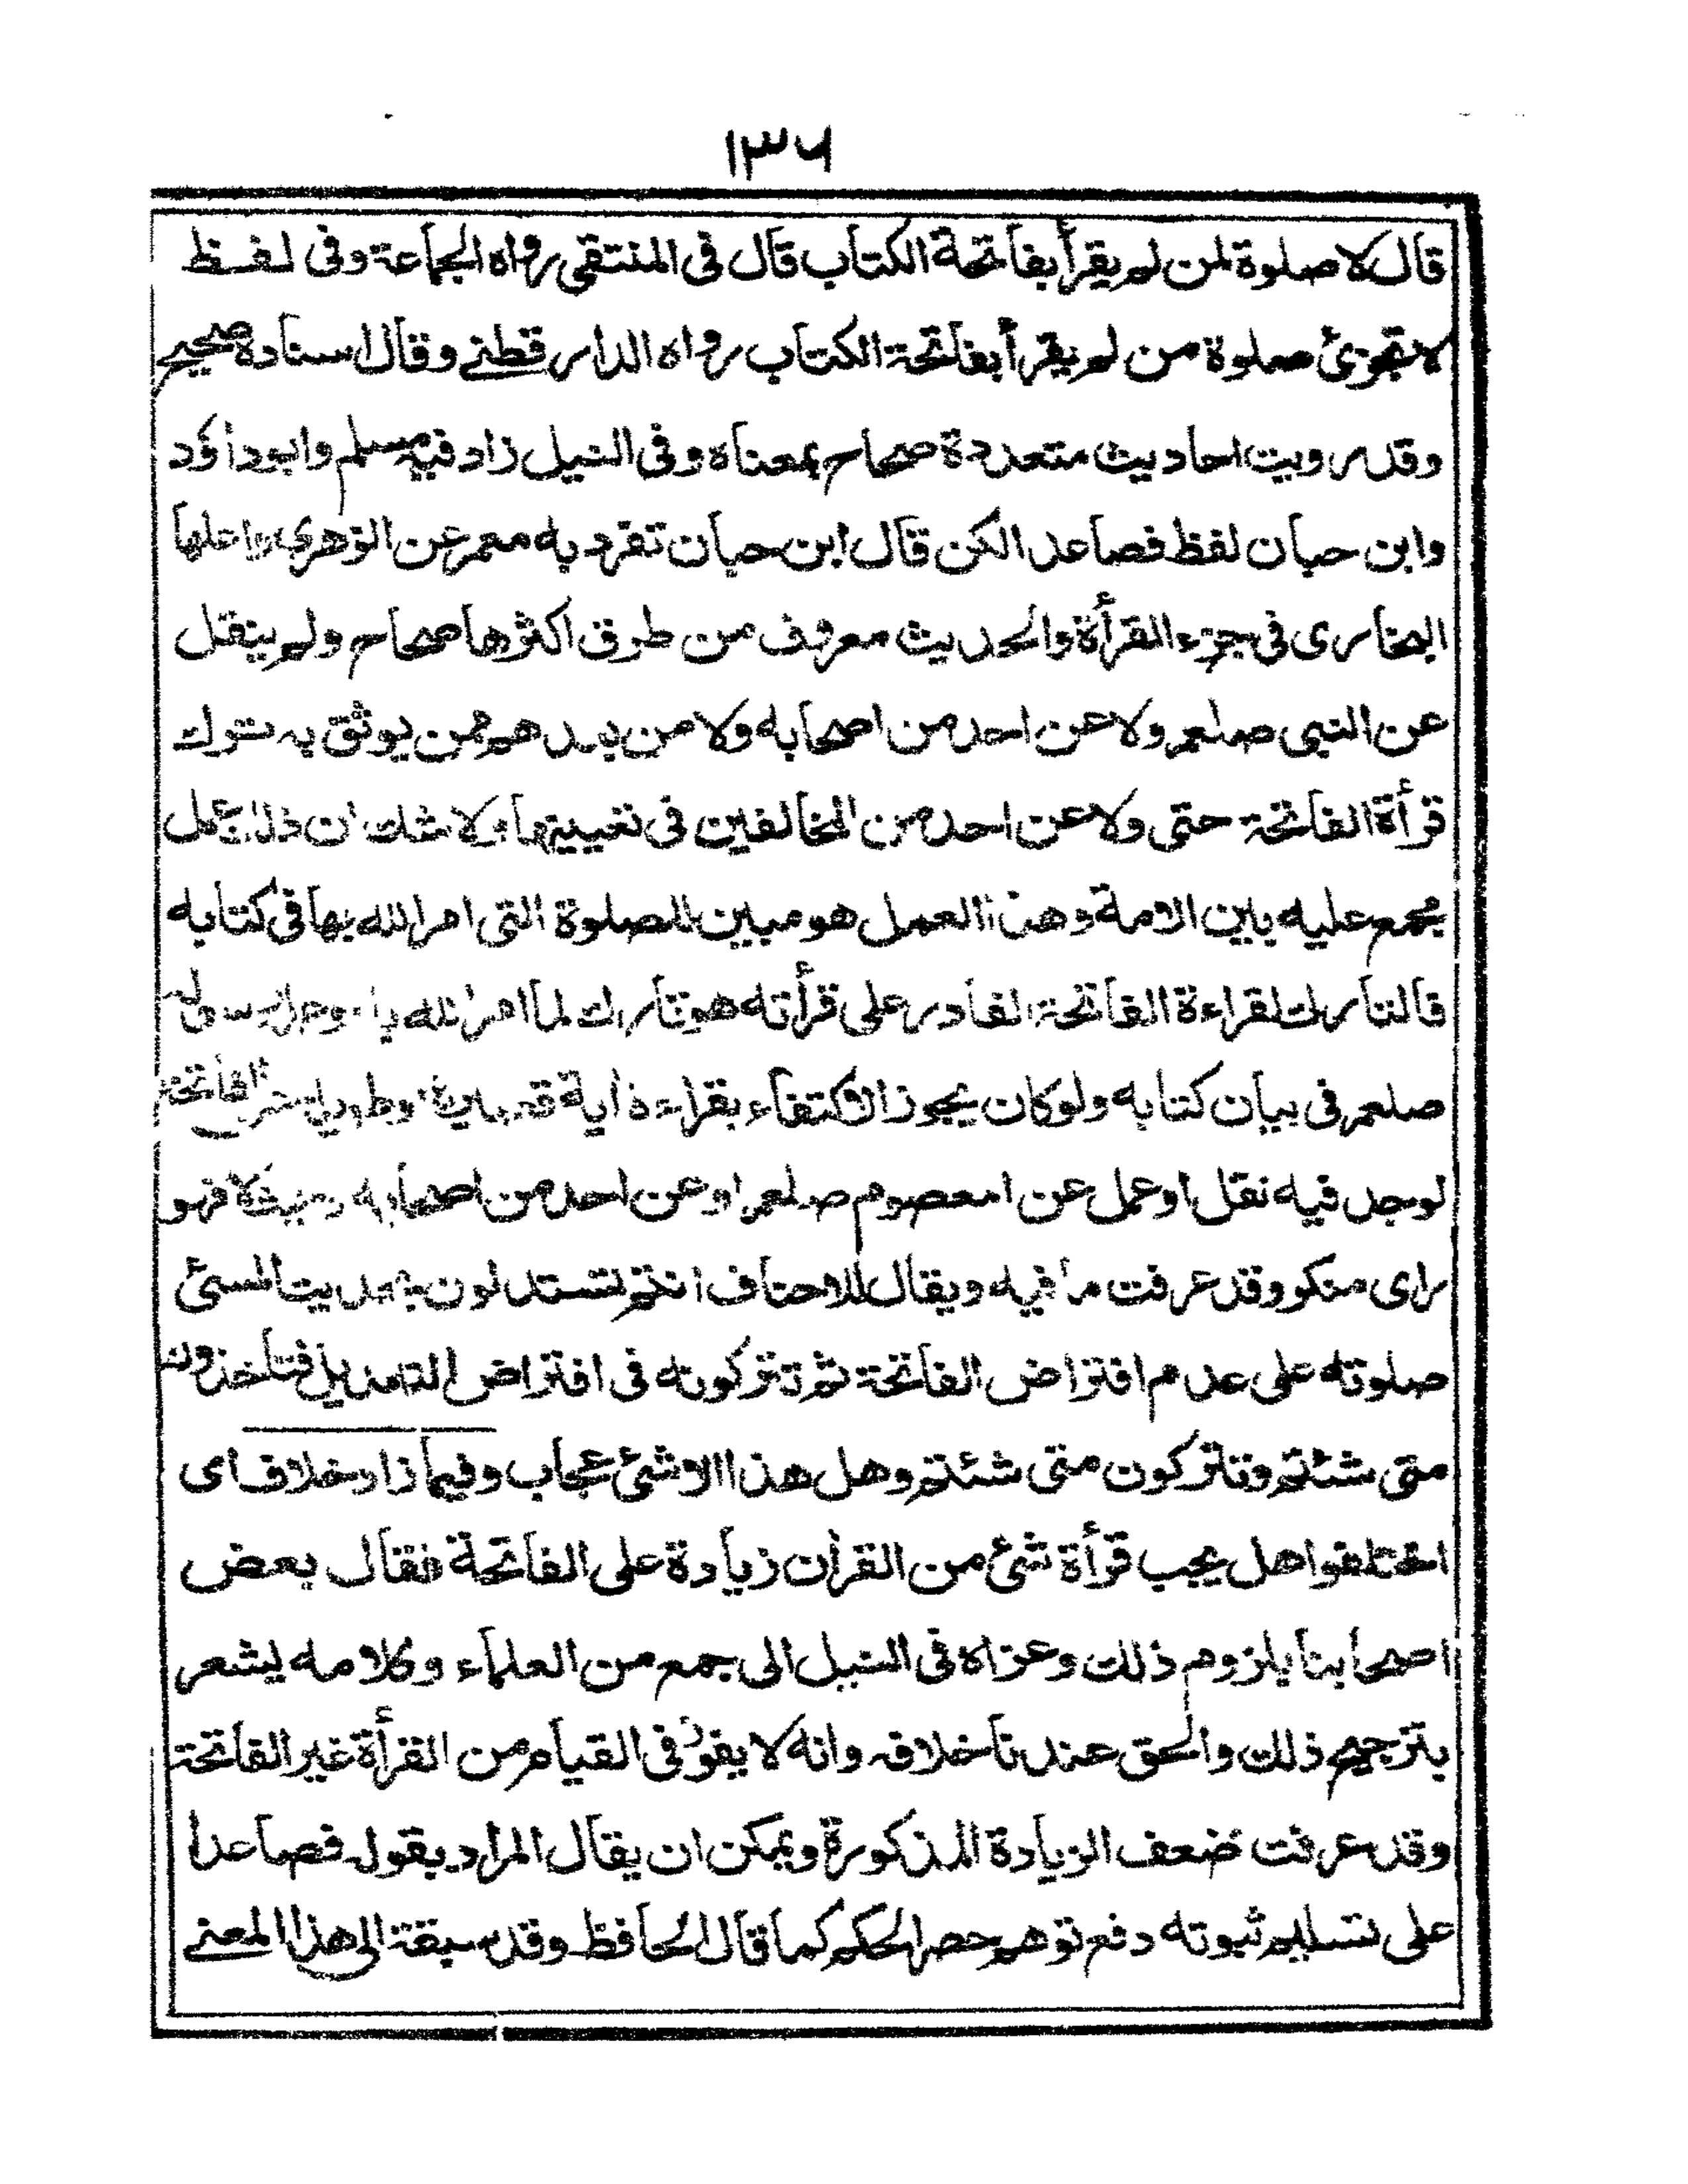 ١٣٦
قال لا صلوة لمن لم يقرأ بفاتحة الكتاب قال فى المنتقى رواه الجماعة وفى لفظ
لا تجزئ صلوة من لم يقرأ بفاتحة الكتاب رواه الدار قطنے وقال اسناده صحيح
وقد رويت احاديث متعددة صحاح بمعناه وفى النيل زاد فيه مسلم وابوداؤد
وابن حبان لفظ فصاعدا لكن قال ابن حبان تفرد به معمر عن الزهرى واعلها
البخارى فى جزء القرأة والحديث معروف من طرق اكثرها صحاح ولم ينقل
عن النبى صلعم ولا عن احد من اصحابه ولا من بعدهم ممن يوثق به ترك
قرأة الفاتحة حتى ولا عن احد من المخالفين فى تعيينها ولا شك ان ذلك عمل
مجمع عليه بين الامة وهذا العمل هو مبين للصلوة التى امر الله بها فى كتابه
فالتارك لقراءة الفاتحة القادر على قرأته هو تارك لما امر الله
صلعم فى بيان كتابه ولو كان يجوز الاكتفاء بقراءة أية قصيرة او طويلة غير الفاتحة
لوجد فيه نقل او عمل عن المعصوم صلعم او عن احد من اصحابه وحيث لا فهو
راى منكم وقد عرفت ما فيه ويقال للاحناف انتم تستدلون بحديث المسئ
صلوته على عدم افتراض الفاتحة ثم تتركونه فى افتراض التعديل فتاخذون
متى شئتم وتتركون متى شئتم وهل هذا الا شئ عجاب وفيما زاد خلاف اى
اختلفوا هل يجب قرأة شئ من القرأن زيادة على الفاتحة فقال بعض
اصحابنا يلزوم ذلك وعزاه فى النيل الى جمع من العلماء وكلامه ليشعر
بترجيح ذلك والحق عندنا خلافه وانه لا يقرؤ فى القيام من القرأة غير الفاتحة
وقد عرفت ضعف الزيادة المذكورة ويمكن ان يقال المراد بقوله فصاعدا
على تسليم ثبوته دفع توهم حصر الحكم كما قال الحافظ وقد سبقة الى هذا المعنے